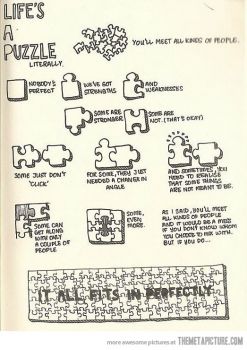 LIFE'S
A
PUZZLE
LITERALLY.
YOU'LL MEET ALL KINDS OF PEOPLE.
NOBODY'S
PERFECT
WE'VE GOT
STRENGTHS
AND
WEAKNESSES
SOME ARE
STRONGER
SOME ARE
NOT. (THAT'S OKAY)
SOME JUST DON'T
'CLICK'
FOR SOME, THEY JUST
NEEDED A CHANGE IN
ANGLE
AND SOMETIMES, YOU
NEED TO REALISE
THAT SOME THINGS
ARE NOT MEANT TO BE.
SOME CAN
GET ALONG
WITH ONLY
A COUPLE OF
PEOPLE
SOME,
EVEN
MORE.
AS I SAID, YOU'LL MEET
ALL KINDS OF PEOPLE
AND IT WOULD BE A MESS
IF YOU DON'T KNOW WHOM
YOU CHOOSE TO MIX WITH.
BUT IF YOU DO...
IT ALL FITS IN PERFECTLY
more awesome pictures at THEMETAPICTURE.COM